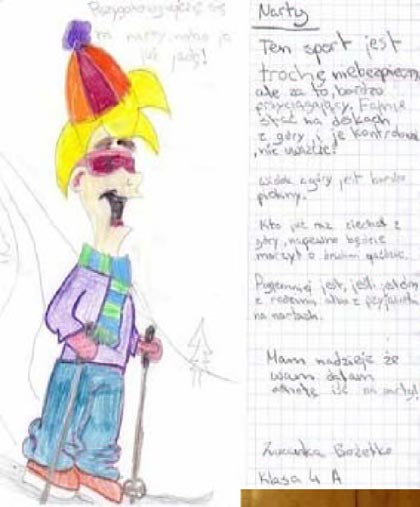 na narty, 
już jadę!
Narty
Ten sport jest
trochę niebezpieczny
ale za to, bardzo
przyciągający. Fajnie
stać na deskach
z góry i je kontrolować
, nie uważcie?
Widok z góry jest bardzo
piękny.
Kto już raz zjechał z
góry, napewno będzie
marzył o drugim
Przyjemniej jest, jeśli jesteśmy
z rodziną albo z przyjaciółmi
na nartach.
Mam nadzieję że
wam dałam
ochotę iść na narty!
Zuzanka
Klasa 4 A